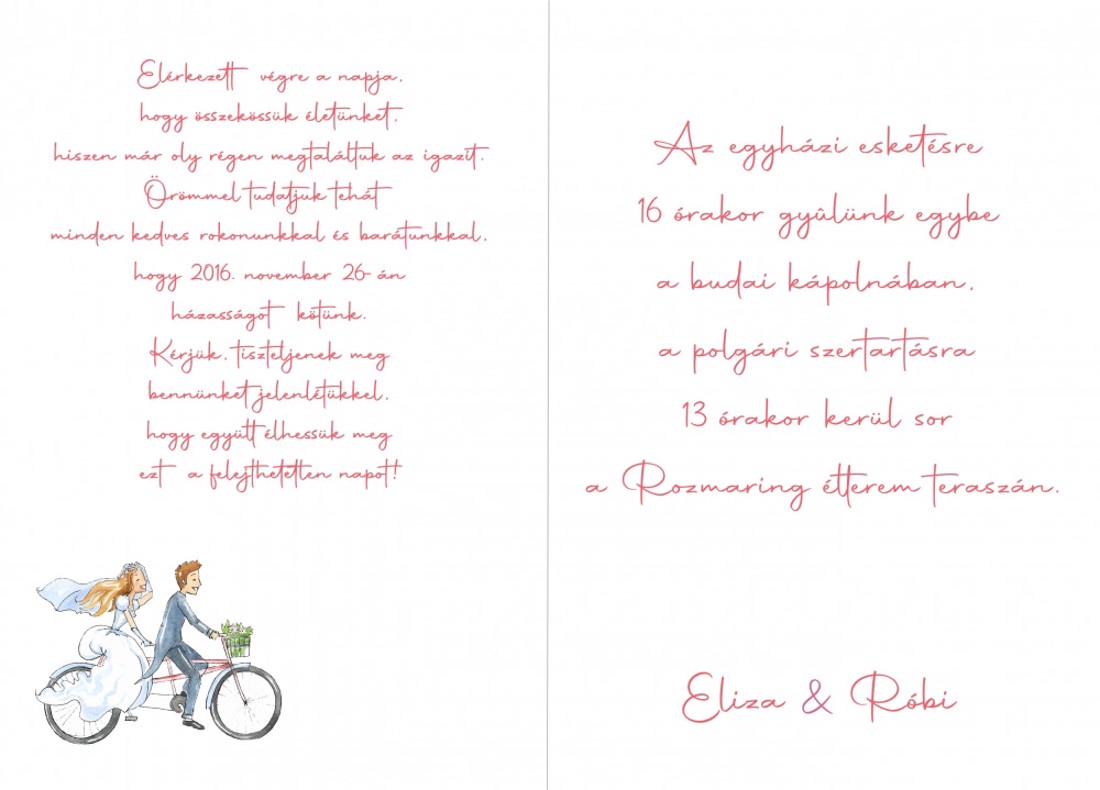 Elérkezett végre a napja,
hogy összekössük életünket,
hiszen már oly régen megtaláltuk az igazit.
Örömmel tudatjuk tehát
minden kedves rokonunkkal és barátunkkal,
hogy 2016. november 26-án
házasságot kötünk.
Kérjük, tiszteljenek meg
bennünket jelenlétükkel,
hogy együtt élhessük meg
ezt a felejthetetlen napot!
Az egyházi esketésre
16 órakor gyûlünk egybe
a budai kápolnában,
a polgári szertartásra
13 órakor kerül sor
a Rozmaring étterem teraszán.
Eliza & Róbi